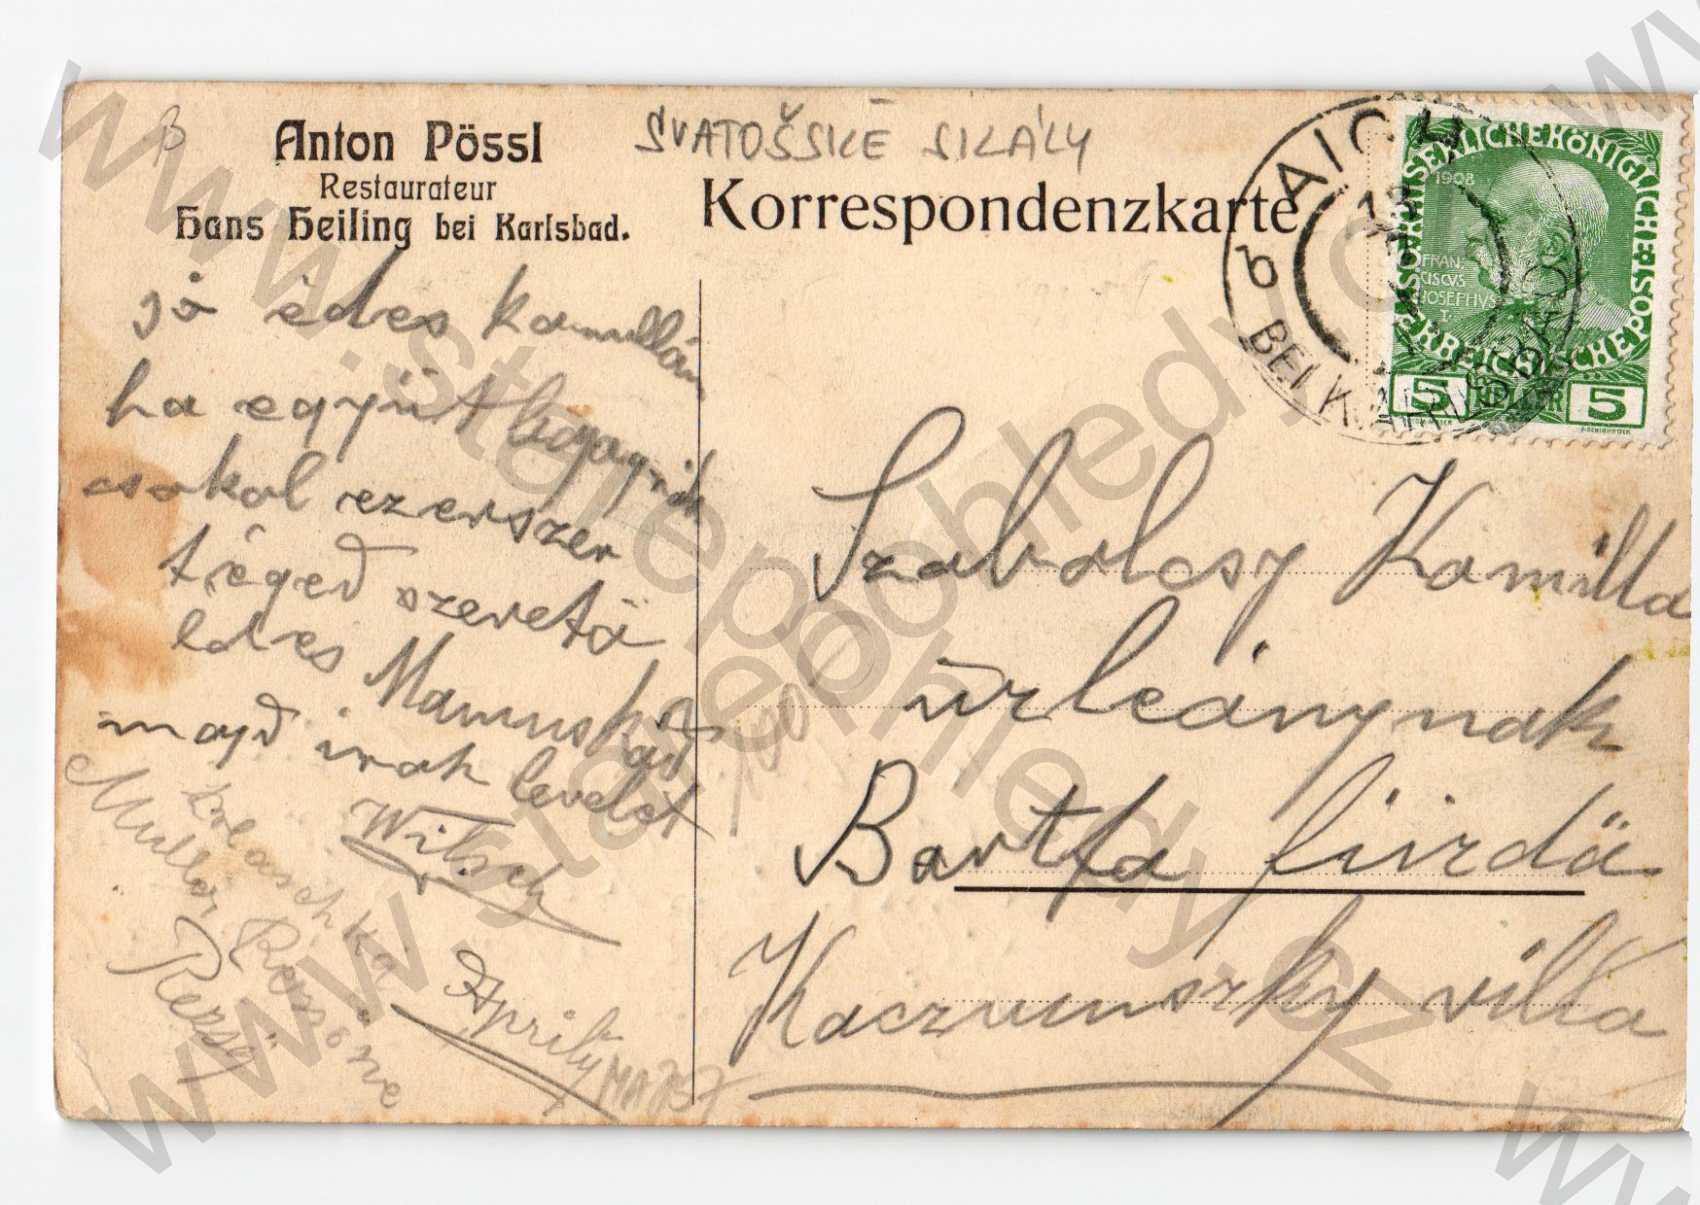 B
Anton Pössl
Restaurateur
Hans Heiling bei Karlsbad.
SVATOŠSKÉ SKÁLY
Korrespondenzkarte
AICH
BEI KARLSBAD
13
b
KAISERLICHEKÖNIGLICHE ÖSTERREICHISCHEPOST
1908
FRAN
CISCVS
IOSEPHVS
I
5 HELLER 5
jó édes Kamillám
ha együt
csokol ezerszer
téged szeretö
edes Mamuskád
majd irok levelet
Wilsch
Kolaschka
Müller Rezsöne
Rezsö
Aprily
100
Szabolcsy Kamilla
úrleánynak
Bartfa fürdö
Kaczvinszky villa
www.starepohledy.cz
www.starepohledy.cz